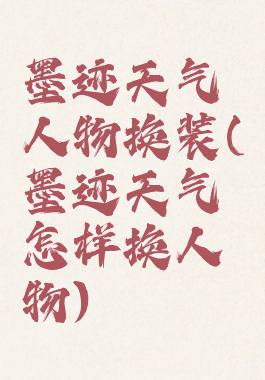 墨迹天气
人物换装(
墨迹天气
怎样换人
物)